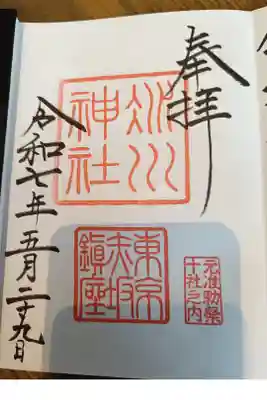 奉拝
氷川
神社
元准勅祭
十社之内
東京
赤坂
鎮座
令和七年五月二十九日